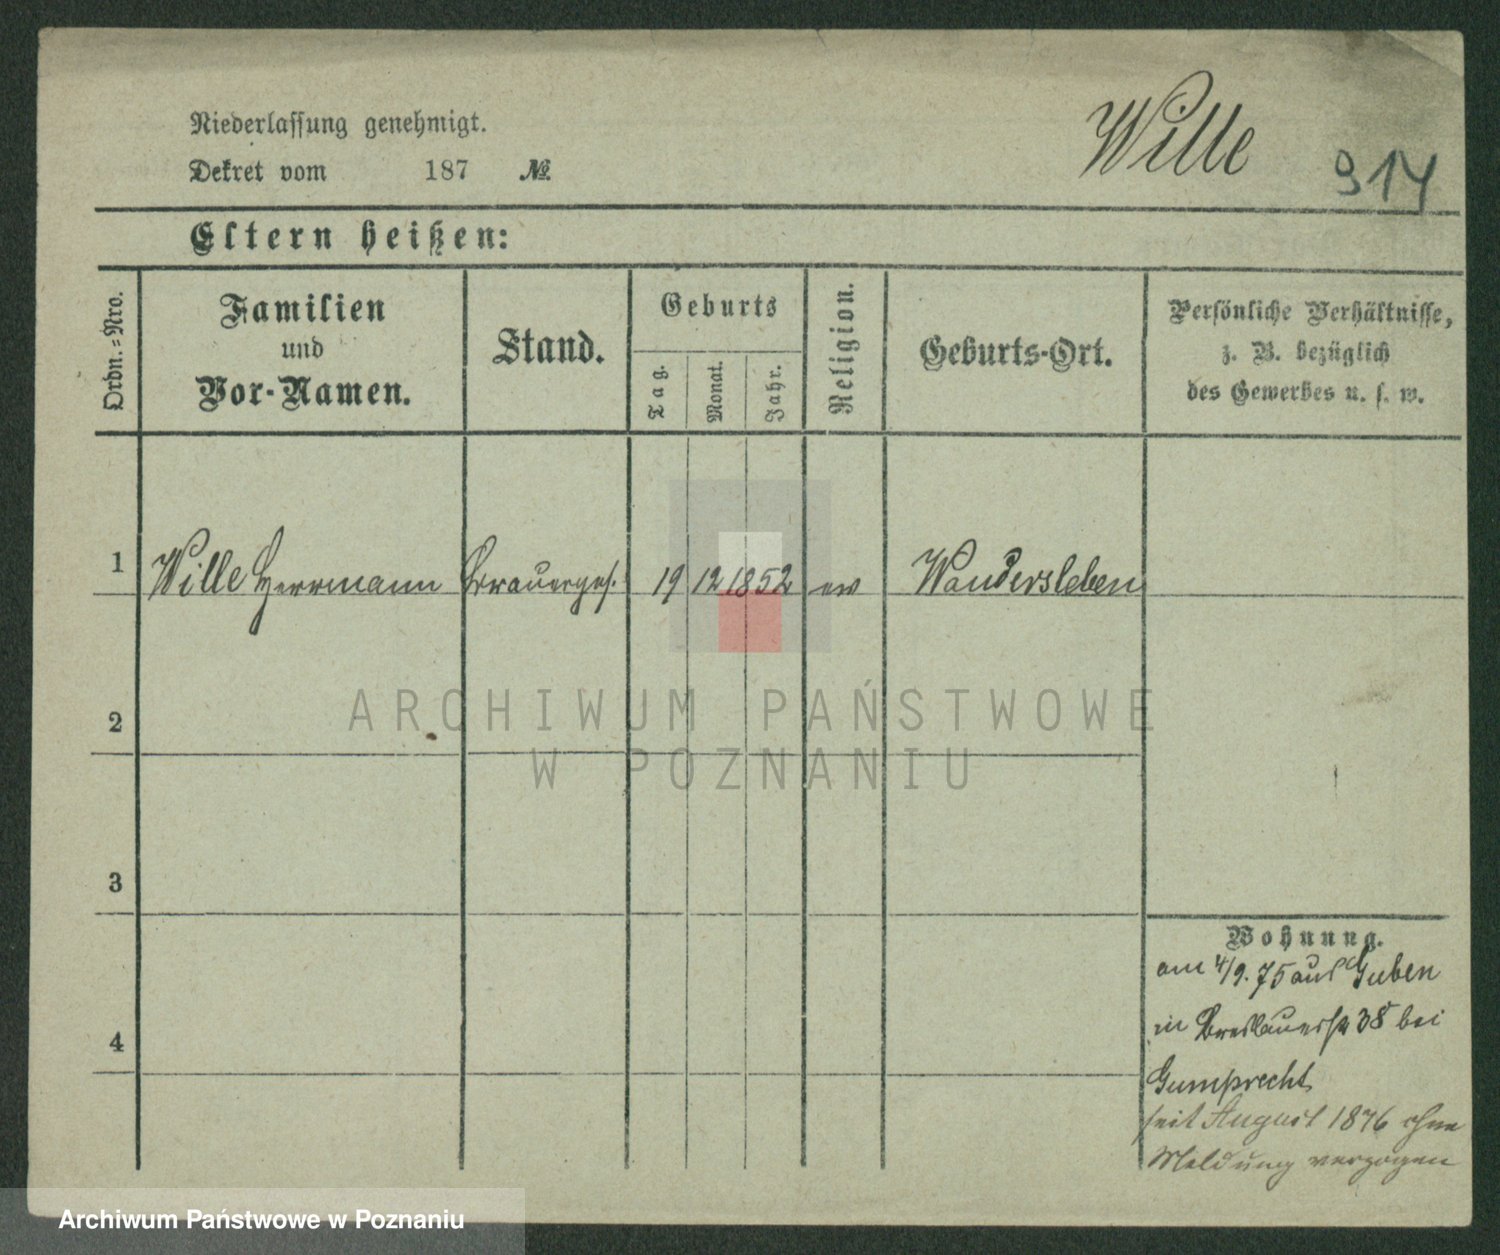 Niederlassung genehmigt.
Wille
914
Dekret vom 187 №
Eltern heißen:
Ordn.-Nro.
Familien
und
Vor-Namen.
Stand.
Geburts
Tag.
Monat.
Jahr.
Religion.
Geburts-Ort.
Persönliche Verhältnisse,
z. B. bezüglich
des Gewerbes u. s. w.
1 Wille Herrmann Brauerges. 19 12 1852 ev Wandersleben
ARCHIWUM PAŃSTWOWE
W POZNANIU
2
3
4
Wohnung.
am 4/9. 75 aus Guben
in Breslauerstr 38 bei
Gumprecht
seit August 1876 ohne
Meldung verzogen
Archiwum Państwowe w Poznaniu